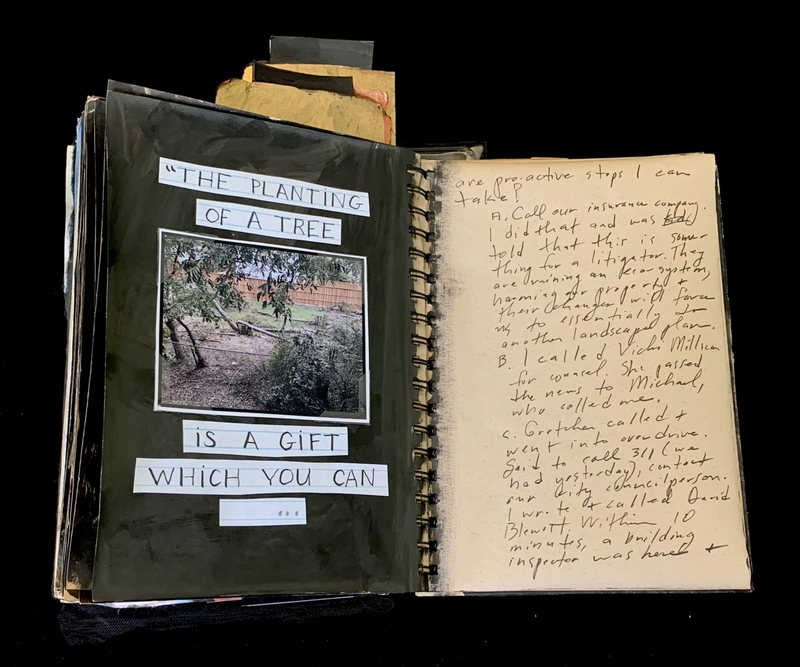 "THE PLANTING
OF A TREE
IS A GIFT
WHICH YOU CAN
...
are pro-active steps I can
take?
A. Call our insurance company.
I did that and was
told that this is some-
thing for a litigator. They
are ruining an eco-system,
harming our property &
their changes will force
us to essentially do
another landscape plan.
B. I called Vicki Millican
for counsel. She passed
the news to Michael,
who called me.
C. Gretchen called &
went into overdrive.
Said to call 311 (we
had yesterday), contact
our city councilperson.
I wrote & called David
Blewett. Within 10
minutes, a building
inspector was here &